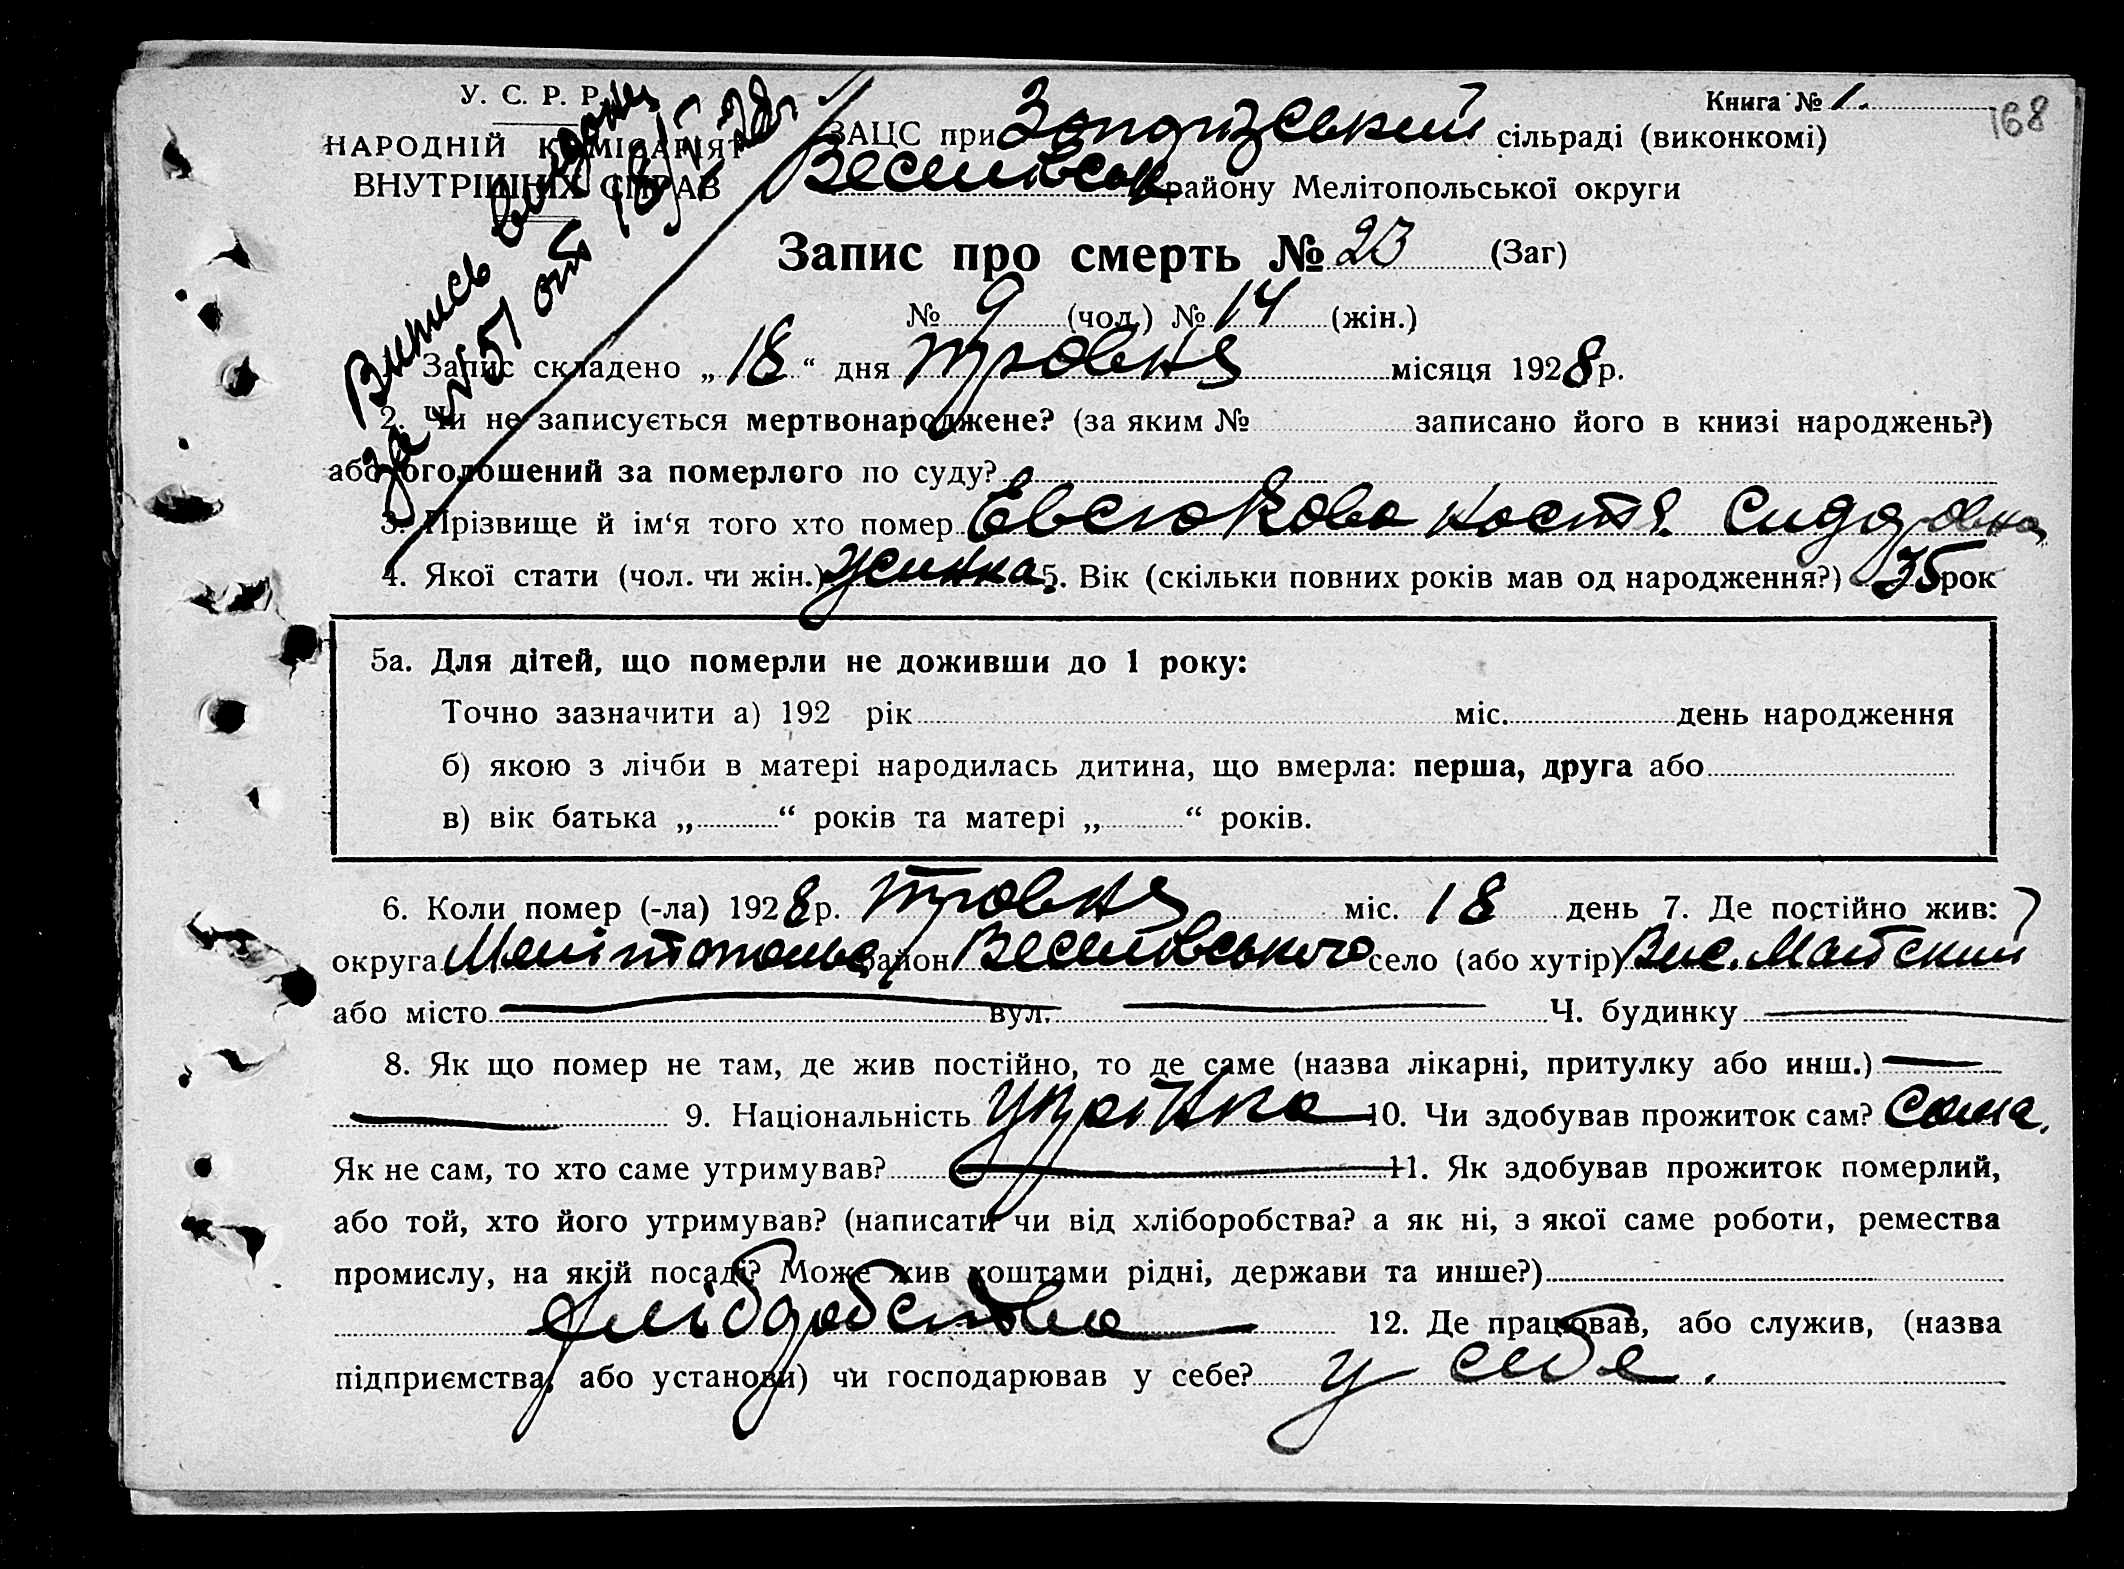 У. С. Р. Р.
НАРОДНІЙ КОМІСАРІЯТ
ВНУТРІШНІХ СПРАВ
Книга № 1.
168
ЗАЦС при Запорізський сільраді (виконкомі)
Веселівськ району Мелітопольської округи
Випись видана
за № 51 от 18/V 28 г
Запис про смерть № 23 (Заг)
№ 9 (чол.) № 14 (жін.)
Запис складено „ 18 “ дня травня місяця 1928 р.
2. Чи не записується мертвонароджене? (за яким № записано його в книзі народжень?)
або оголошений за померлого по суду?
3. Прізвище й ім‘я того хто помер Евсюкова Костя Сидоровна
4. Якої стати (чол. чи жін.) жинка 5. Вік (скільки повних років мав од народження?) 35 рок
5а. Для дітей, що померли не доживши до 1 року:
Точно зазначити а) 192 рік міс. день народження
б) якою з лічби в матері народилась дитина, що вмерла: перша, друга або
в) вік батька „ “ років та матері „ “ років.
6. Коли помер (-ла) 1928 р. травня міс. 18 день 7. Де постійно жив:
округа Мелітопольс район Веселівського село (або хутір) Вис. Майский
або місто вул. Ч. будинку
8. Як що помер не там, де жив постійно, то де саме (назва лікарні, притулку або инш.)
9. Національність Украінка 10. Чи здобував прожиток сам? Сама.
Як не сам, то хто саме утримував? 11. Як здобував прожиток померлий,
або той, хто його утримував? (написати чи від хліборобства? а як ні, з якої саме роботи, ремества
промислу, на якій посаді? Може жив коштами рідні, держави та инше?)
хліборобства 12. Де працював, або служив, (назва
підприємства, або установи) чи господарював у себе? у себе.